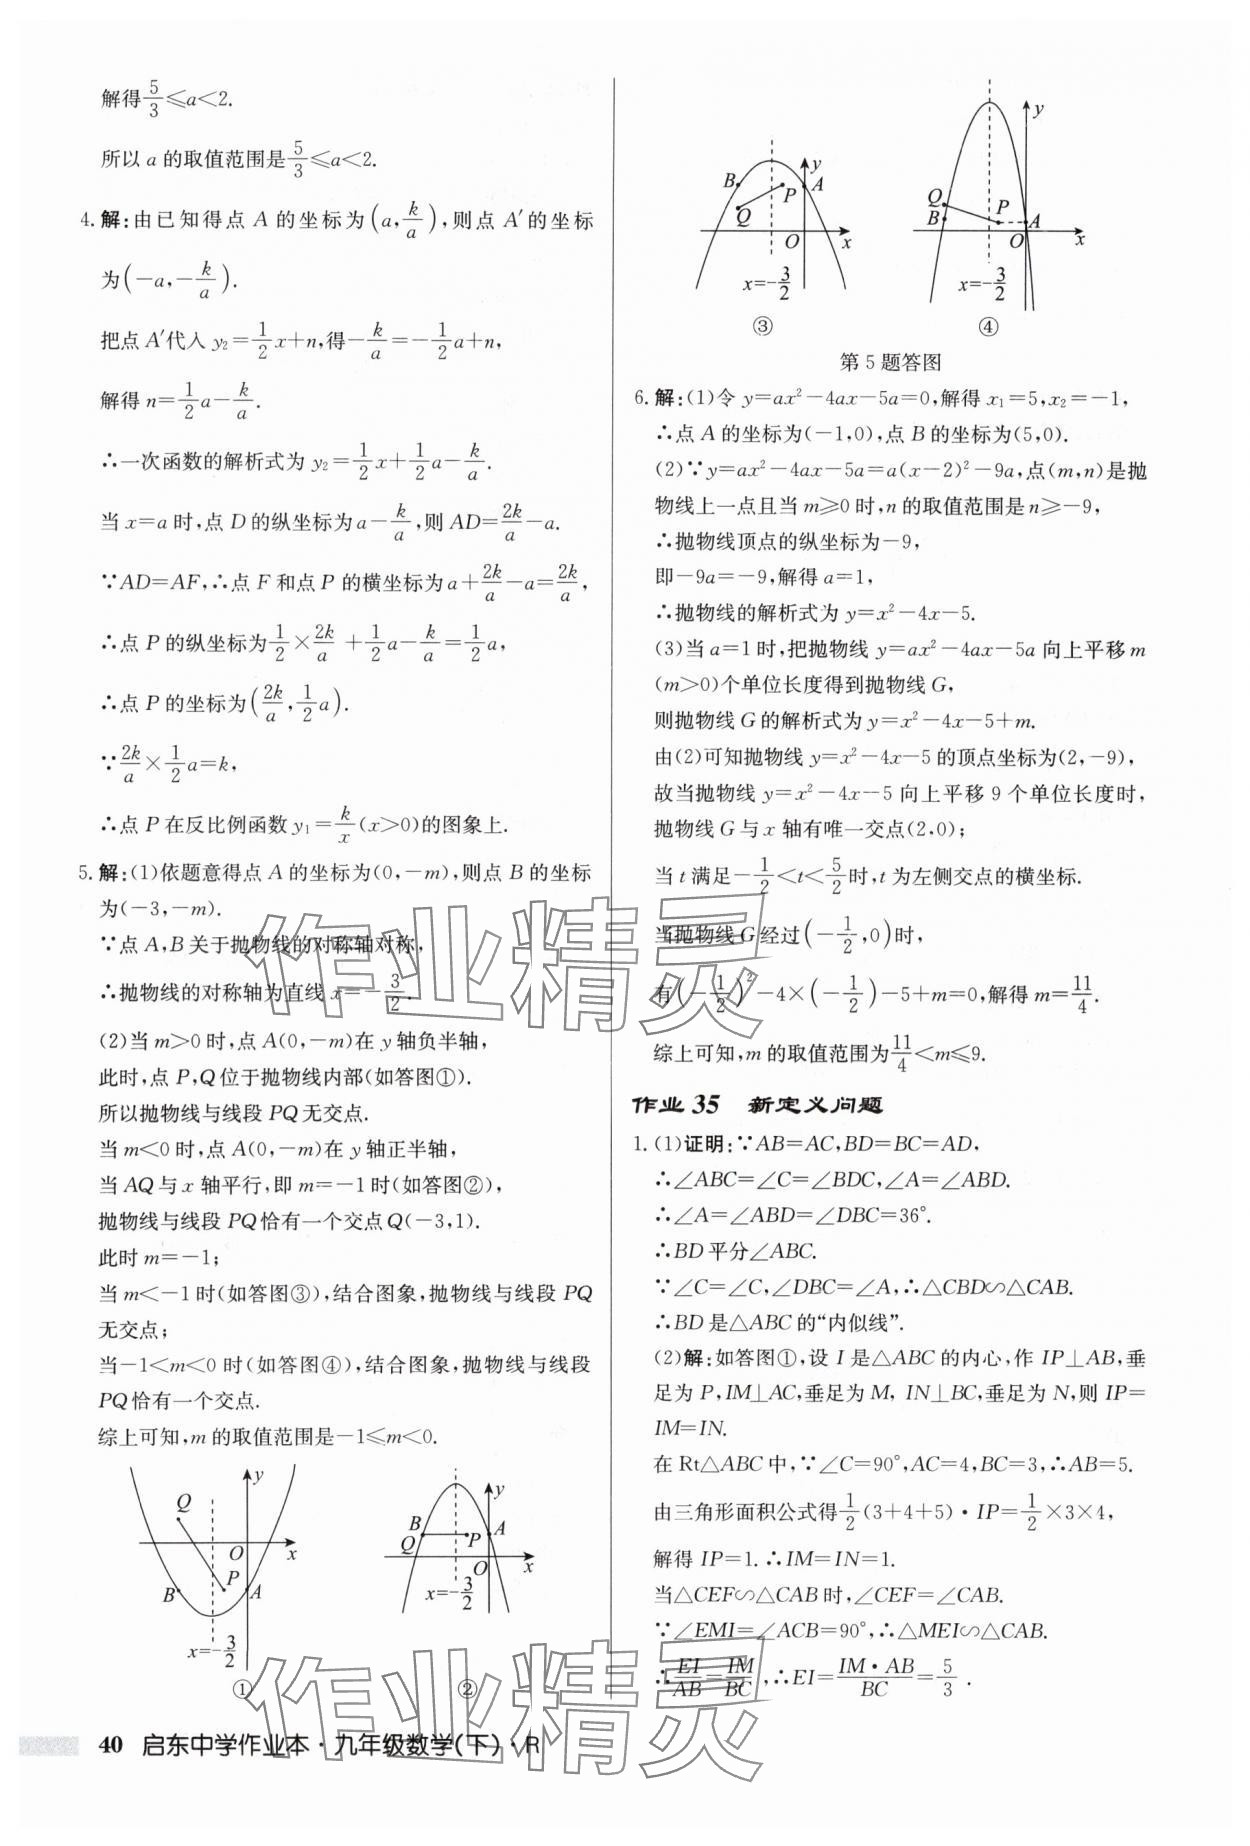 解得5/3≤a<2.
所以 a 的取值范围是5/3≤a<2.
4. 解:由已知得点 A 的坐标为(a,k/a),则点 A′的坐标
为(-a,-k/a).
把点 A′代入 y₂=1/2x+n,得-k/a=-1/2a+n,
解得 n=1/2a-k/a.
∴一次函数的解析式为 y₂=1/2x+1/2a-k/a.
当 x=a 时,点 D 的纵坐标为 a-k/a,则 AD=2k/a-a.
∵AD=AF,∴点 F 和点 P 的横坐标为 a+2k/a-a=2k/a,
∴点 P 的纵坐标为1/2×2k/a+1/2a-k/a=1/2a,
∴点 P 的坐标为(2k/a,1/2a).
∵2k/a×1/2a=k,
∴点 P 在反比例函数 y₁=k/x(x>0)的图象上.
5. 解:(1)依题意得点 A 的坐标为(0,-m),则点 B 的坐标
为(-3,-m).
∵点 A,B 关于抛物线的对称轴对称,
∴抛物线的对称轴为直线 x=-3/2.
(2)当 m>0 时,点 A(0,-m)在 y 轴负半轴,
此时,点 P,Q 位于抛物线内部(如答图①).
所以抛物线与线段 PQ 无交点.
当 m<0 时,点 A(0,-m)在 y 轴正半轴,
当 AQ 与 x 轴平行,即 m=-1 时(如答图②),
抛物线与线段 PQ 恰有一个交点 Q(-3,1).
此时 m=-1;
当 m<-1 时(如答图③),结合图象,抛物线与线段 PQ
无交点;
当-1<m<0 时(如答图④),结合图象,抛物线与线段
PQ 恰有一个交点.
综上可知,m 的取值范围是-1≤m<0.
y Q O x P B A x=-3/2
①
y B Q P A O x x=-3/2
②
y B P A Q O x x=-3/2
③
y Q B P A O x x=-3/2
④
第 5 题答图
6. 解:(1)令 y=ax²-4ax-5a=0,解得 x₁=5,x₂=-1,
∴点 A 的坐标为(-1,0),点 B 的坐标为(5,0).
(2)∵y=ax²-4ax-5a=a(x-2)²-9a,点(m,n)是抛
物线上一点且当 m≥0 时,n 的取值范围是 n≥-9,
∴抛物线顶点的纵坐标为-9,
即-9a=-9,解得 a=1,
∴抛物线的解析式为 y=x²-4x-5.
(3)当 a=1 时,把抛物线 y=ax²-4ax-5a 向上平移 m
(m>0)个单位长度得到抛物线 G,
则抛物线 G 的解析式为 y=x²-4x-5+m.
由(2)可知抛物线 y=x²-4x-5 的顶点坐标为(2,-9),
故当抛物线 y=x²-4x-5 向上平移 9 个单位长度时,
抛物线 G 与 x 轴有唯一交点(2,0);
当 t 满足-1/2<t<5/2时,t 为左侧交点的横坐标.
当抛物线 G 经过(-1/2,0)时,
有(-1/2)²-4×(-1/2)-5+m=0,解得 m=11/4.
综上可知,m 的取值范围为11/4<m≤9.
作业 35 新定义问题
1. (1)证明:∵AB=AC,BD=BC=AD,
∴∠ABC=∠C=∠BDC,∠A=∠ABD.
∴∠A=∠ABD=∠DBC=36°.
∴BD 平分∠ABC.
∵∠C=∠C,∠DBC=∠A,∴△CBD∽△CAB.
∴BD 是△ABC 的“内似线”.
(2)解:如答图①,设 I 是△ABC 的内心,作 IP⊥AB,垂
足为 P,IM⊥AC,垂足为 M, IN⊥BC,垂足为 N,则 IP=
IM=IN.
在 Rt△ABC 中,∵∠C=90°,AC=4,BC=3,∴AB=5.
由三角形面积公式得1/2(3+4+5)·IP=1/2×3×4,
解得 IP=1.∴IM=IN=1.
当△CEF∽△CAB 时,∠CEF=∠CAB.
∵∠EMI=∠ACB=90°,∴△MEI∽△CAB.
∴EI/AB=IM/BC,∴EI=IM·AB/BC=5/3.
40 启东中学作业本·九年级数学(下)·R
作业精灵
作业精灵